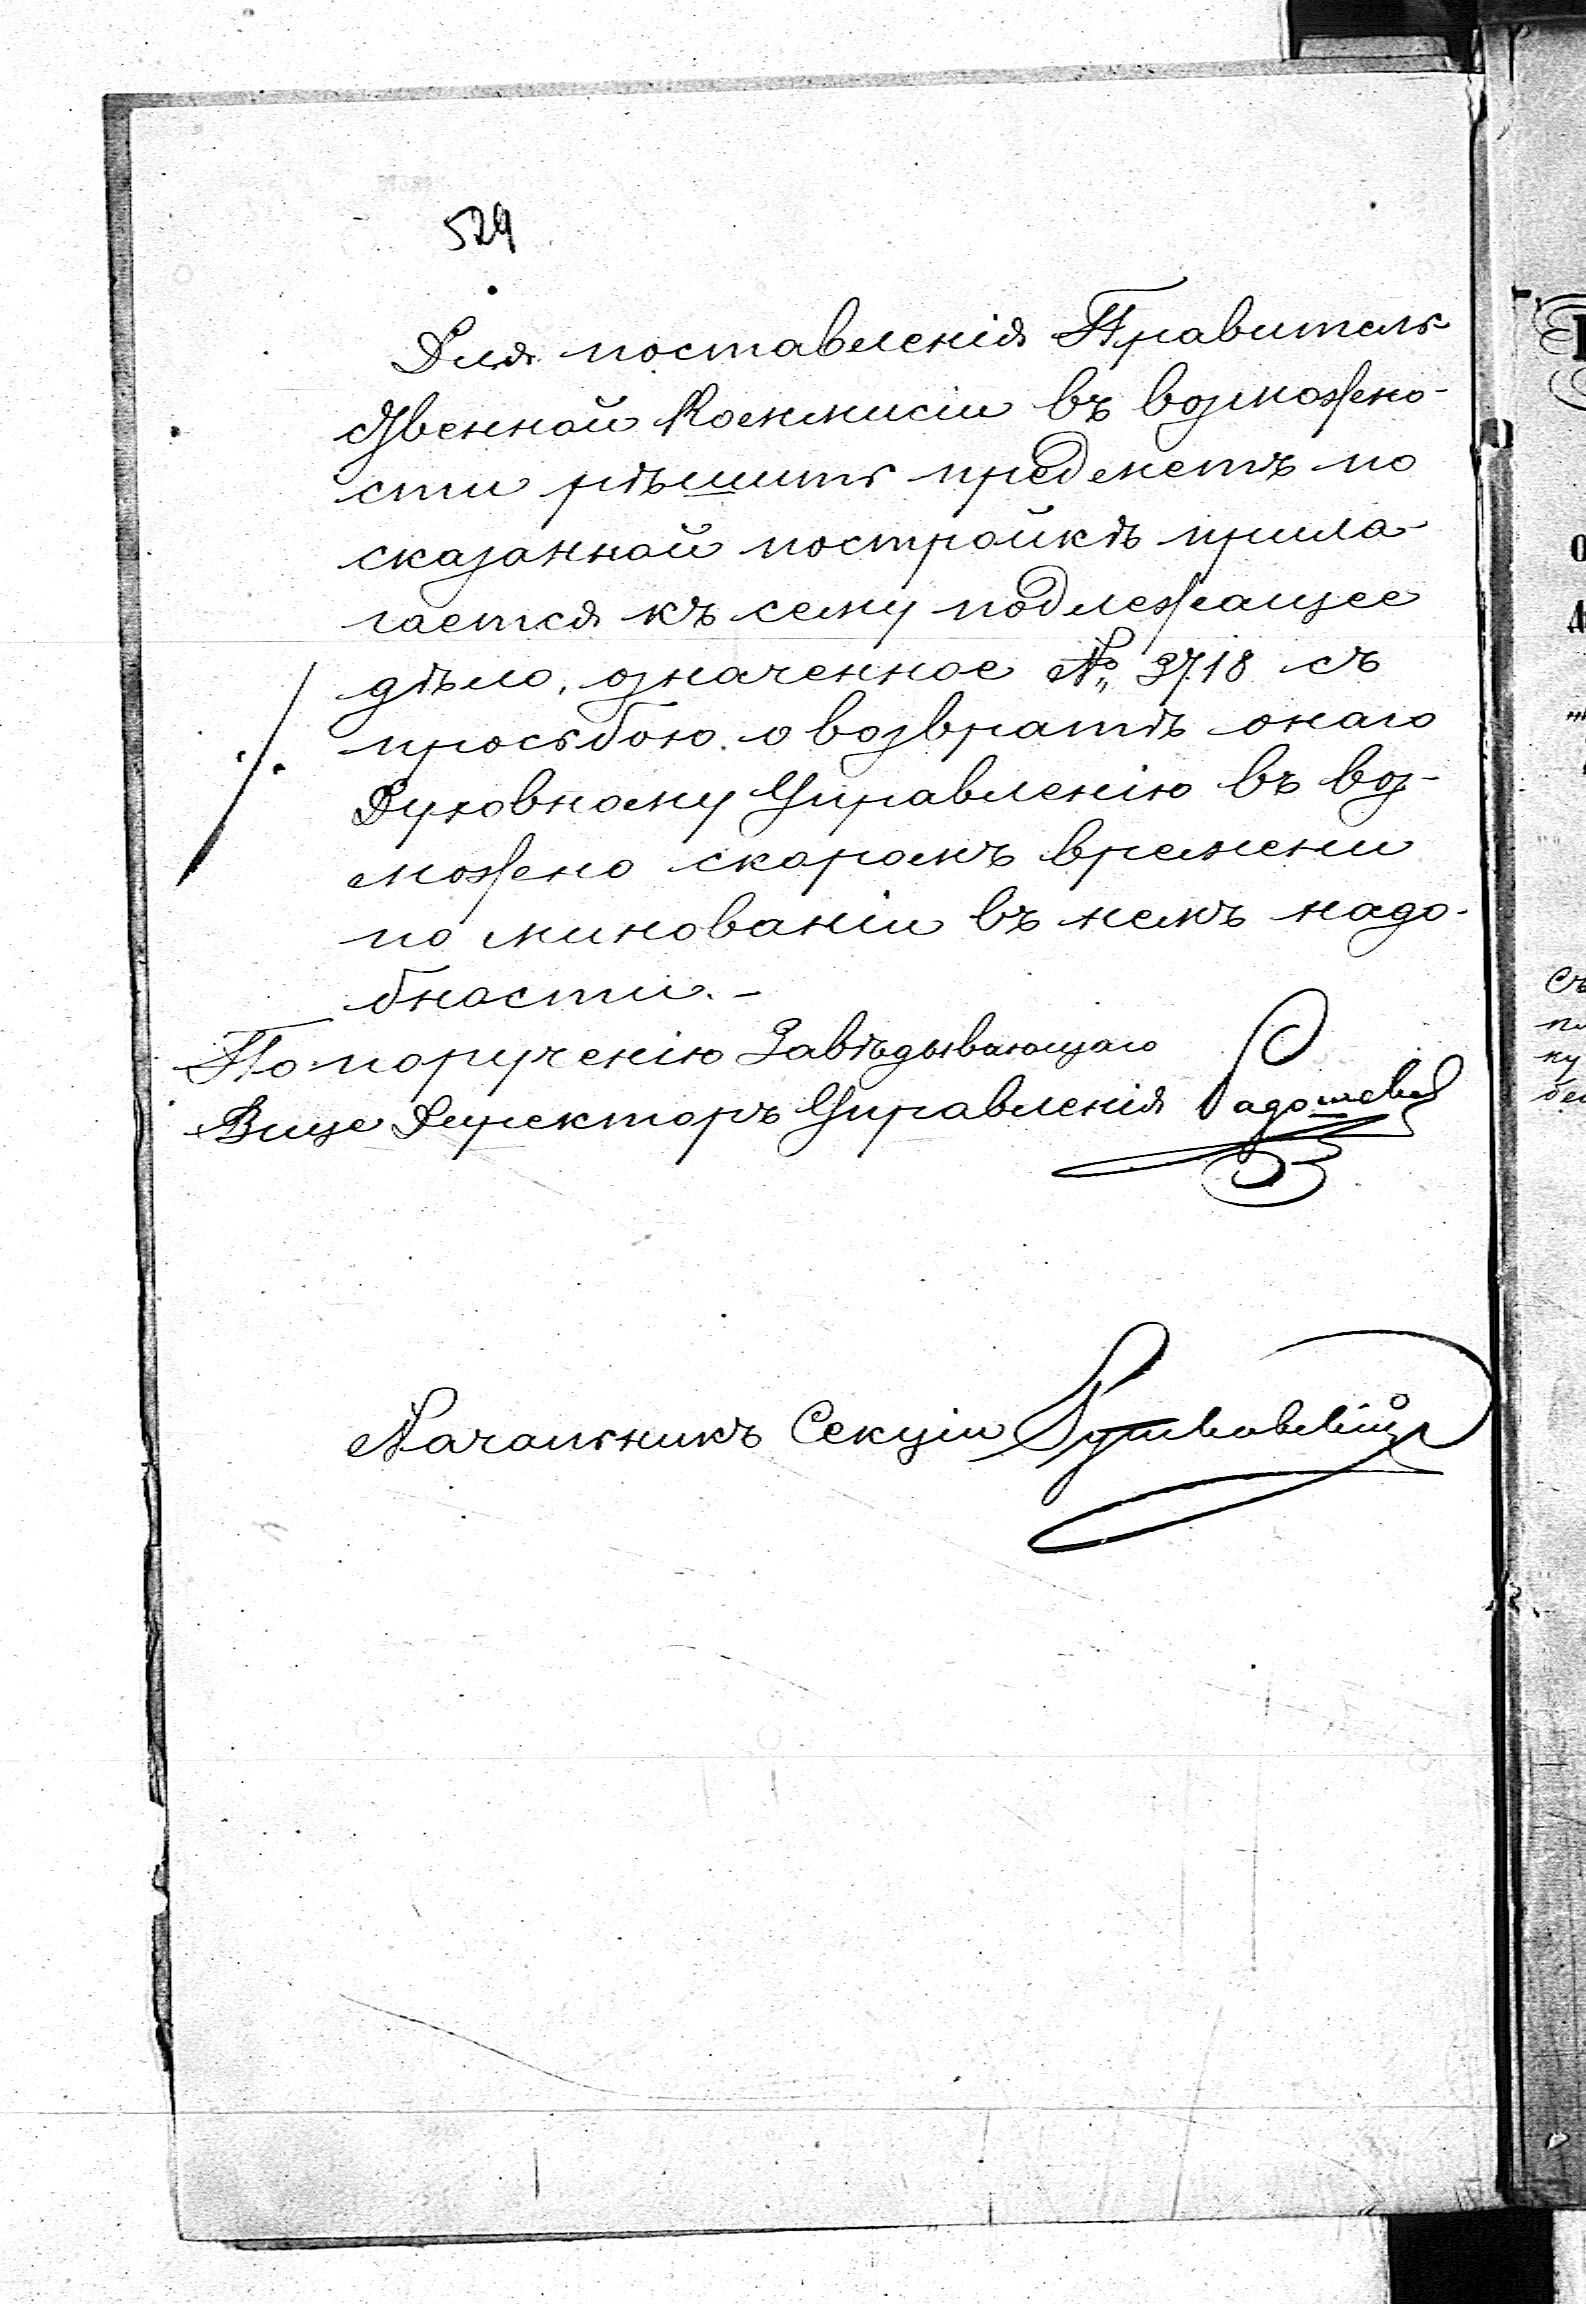 529
Для поставленія Правитель
ственной Коммисіи въ возможно-
сти рѣшить предметъ по
сказанной постройкѣ прила-
гается къ сему подлежащее
дѣло, означенное № 3718 съ
просьбою о возвратѣ онаго
Духовному Управленію въ воз-
можно скоромъ времени
по минованіи въ немъ надо-
бности.-
По порученію Завѣдывающаго
Вице Директоръ Управленія
Начальникъ Секціи